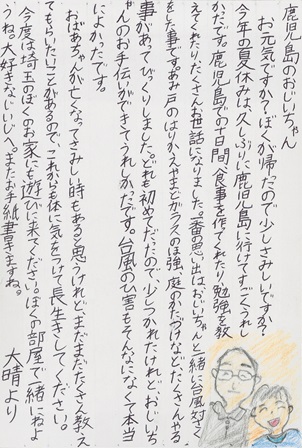 鹿児島のおじいちゃん
お元気ですか？ぼくが帰ったので少しさみしいですか？
今年の夏休みは、久しぶりに鹿児島に行けてすごくうれし
かったです。鹿児島での十日間、食事を作ってくれたり、勉強を教
えてくれたり、たくさんお世話になりました。一番の思い出は、おじいちゃんと一緒に台風対さく
をした事です。あみ戸のはりかえやまどガラスのほ強、庭のかたづけなど、たくさんやる
事があってびっくりしました。どれも初めてだったので少しつかれたけれど、おじいち
ゃんのお手伝いができてうれしかったです。台風のひ害もそんなになくて本当
によかったです。
おばあちゃんが亡くなってさみしい時もあると思うけれど、まだまだたくさん教え
てもらいたいことがあるので、これからも体に気をつけて長生きしてください。
今度は埼玉のぼくのお家にも遊びに来てください。ぼくの部屋で一緒にねよ
うね。大好きなじいじへ。またお手紙書きますね。
大晴より